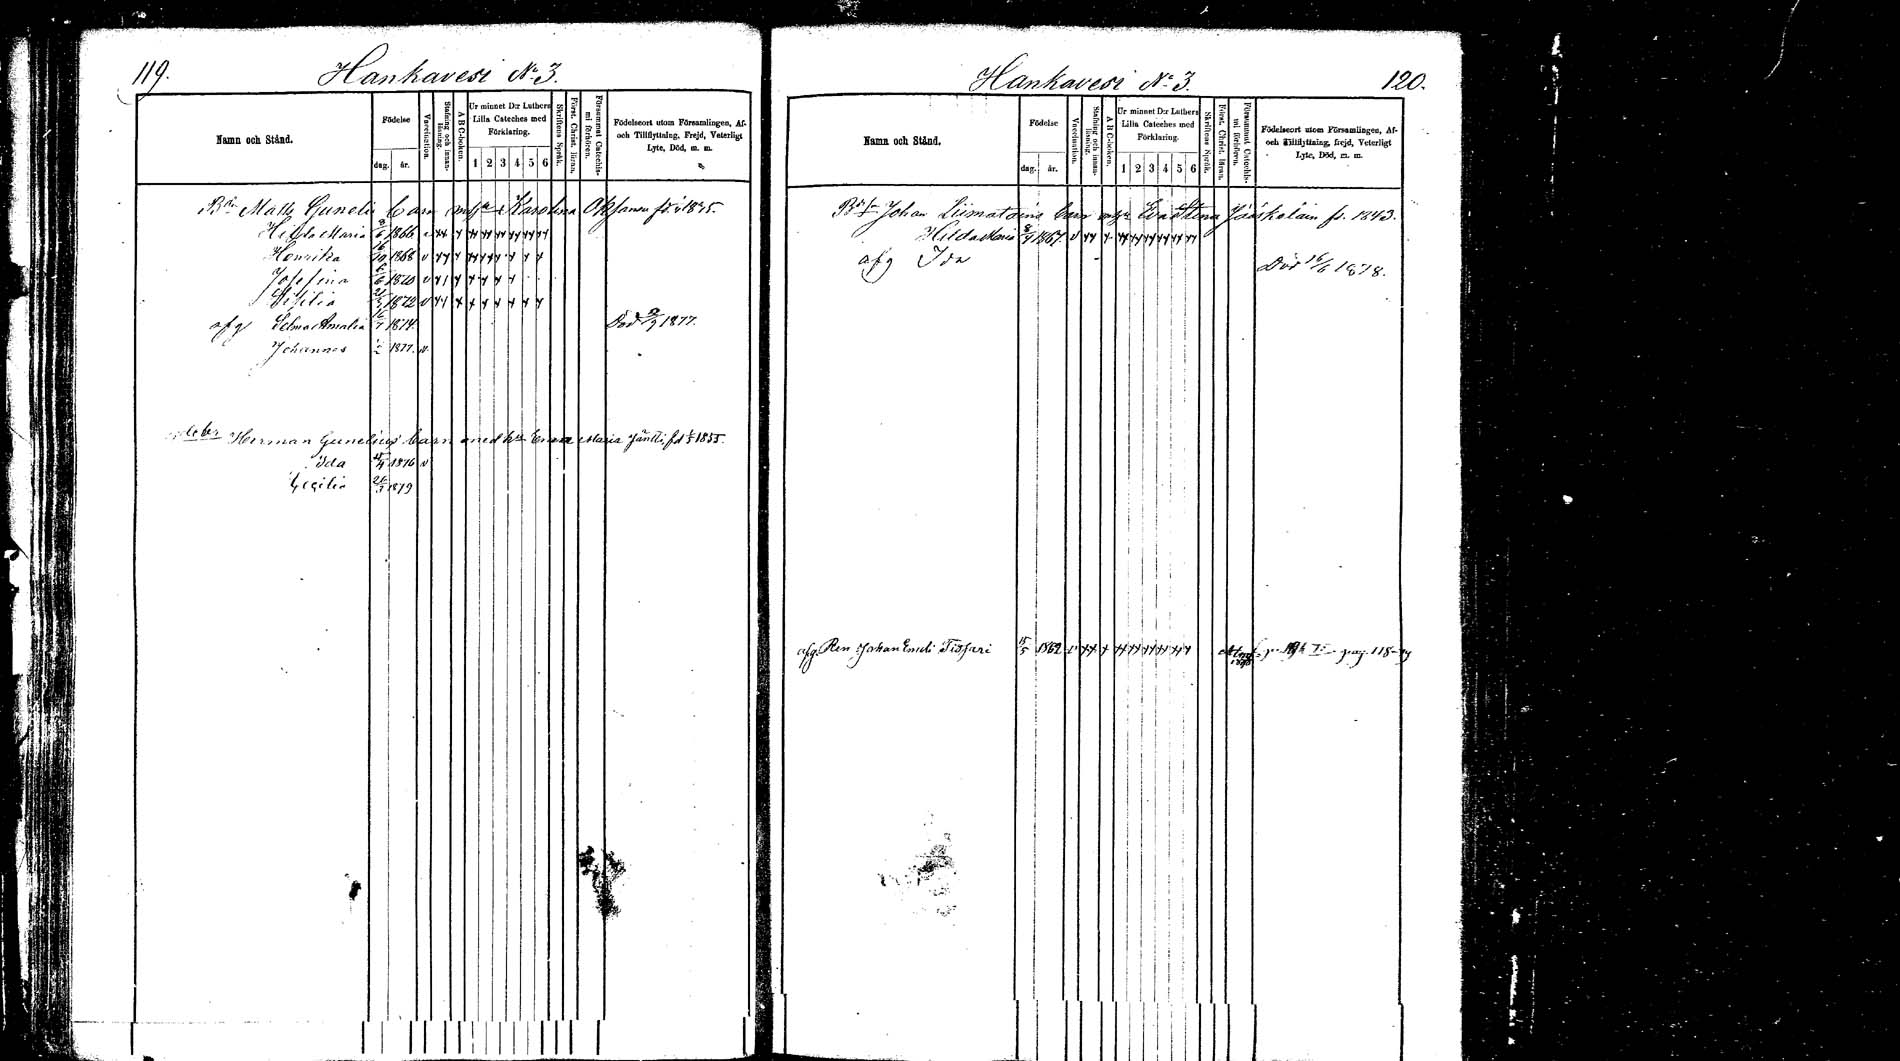 119.
Hankavesi No 3.
Namn och Stånd.
Födelse
dag.
år.
Vaccination.
Stafning och innanläsning.
A B C-boken.
Ur minnet D:r Luthers Lilla Cateches med Förklaring.
1 2 3 4 5 6
Skriftens Språk.
Först. Christ. läran.
Försummat Catechismi förhören.
Födelseort utom Församlingen, Af- och Tillflyttning, Frejd, Veterligt Lyte, Död, m. m.
Matts Gunelii barn Karolina fd. 1835.
Hilda Maria 1866
Henrika 1868
Josefina 1870
Sesilia 1872
afg Selma Amalia 1874. Död 1877.
Johannes 1877. v
Herman Gunelius barn med h:u Emma Maria Jäntti, fd 1855.
Ida 1876 v
Cecilia 1879
Hankavesi No 3.
120.
Namn och Stånd.
Födelse
dag.
år.
Vaccination.
Stafning och innanläsning.
A B C-boken.
Ur minnet D:r Luthers Lilla Cateches med Förklaring.
1 2 3 4 5 6
Skriftens Språk.
Först. Christ. läran.
Försummat Catechismi förhören.
Födelseort utom Församlingen, Af- och Tillflyttning, frejd, Veterligt Lyte, Död, m. m.
Johan Liimatains barn Eva Stina Jääskeläin fd. 1843.
Hilda Maria 1867. v
afg Ida Död 16/6 1878.
afg. Ren Johan Emeli 15/5 1862 pag. 118